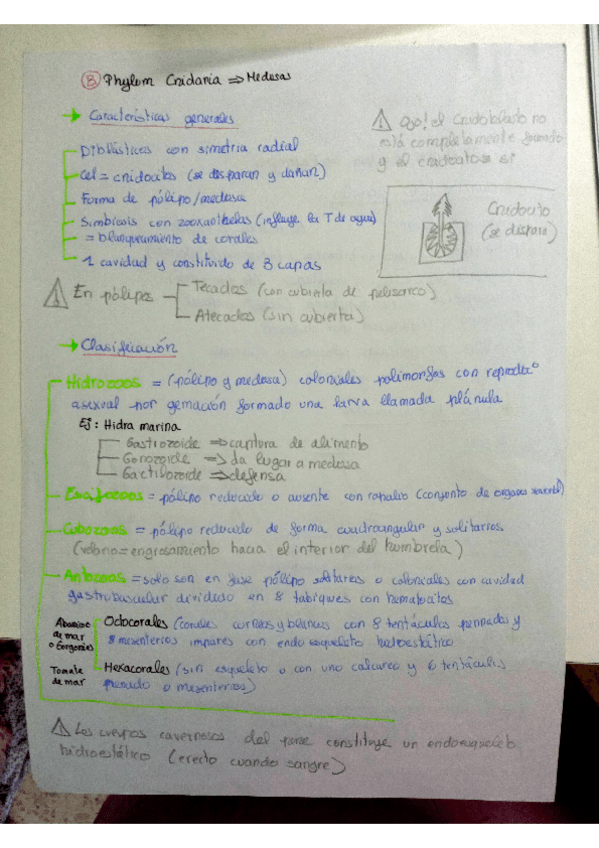 B Phylum Cnidaria ⇒ Medusas
→ Características generales
⚠ Ojo! el Cnidoblasto no
está completamente formado
y el cnidocito si
Diblásticos con simetría radial
Cel = cnidocitos (se disparan y dañan)
Forma de pólipo/medusa
Simbiosis con zooxantelas (influye la T de agua)
= blanqueamiento de corales
1 cavidad y constituido de 3 capas
Cnidocito
(se dispara)
⚠ En pólipos
Tecados (con cubierta de perisarco)
Atecados (sin cubierta)
→ Clasificación
Hidrozoos = (pólipo y medusa) coloniales polimorfos con reproducº
asexual por gemación formado una larva llamada plánula
Ej: Hidra marina
Gastrozoide ⇒ captura de alimento
Gonozoide ⇒ da lugar a medusa
Dactilozoide ⇒ defensa
Escifozoos = pólipo reducido o ausente con ropalio (conjunto de organos sensorial)
Cubozoos = pólipo reducido de forma cuadroangular y solitarios
(velario = engrosamiento hacia el interior del humbrela)
Antozoos = solo son en fase pólipo solitarios o coloniales con cavidad
gastrovascular dividido en 8 tabiques con nematocitos
de mar
o Gorgonias
Octocorales (corales y blancos con 8 tentáculos pennados y
8 mesenterios impares con endo esqueleto hidroestático
Tomate
de mar
Hexacorales (sin esqueleto o con uno calcareo y 6 tentáculos
o mesenterios)
⚠ Los cuerpos cavernosos del pene constituye un endoesqueleto
hidroestático (erecto cuando sangre)